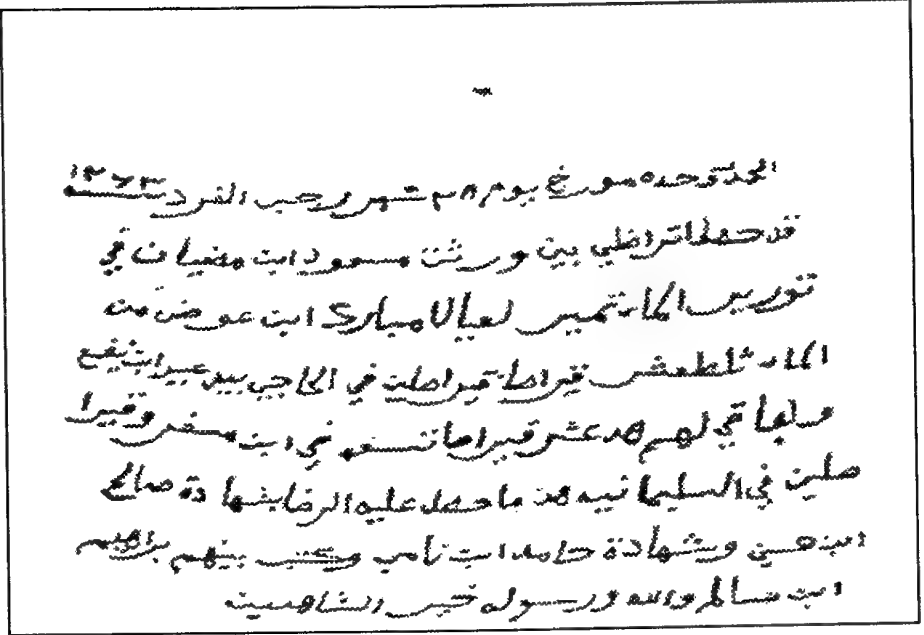 الحمد لله وحده مورخ يوم ٢٨ شهر رجب الفرد سنة ١٢٧٣
قد حصل التراظي بين ورثت مسعود ابن في
لعيال مبارك ابن عوض من
الماء ثلطعشر قيراط قيراطين في بيد عبيد ابن نفيع
والباقي لهم هدعشر قيراط تسعه في ابن مسفر وقيرا
طين في السليمانيه هذ ما حصل عليه الرضا بشهادة صالح
ابن حسن وشهادة حامد ابن نامي وكتب بينهم براهيم
ابن سالم والله ورسوله خير الشاهدين